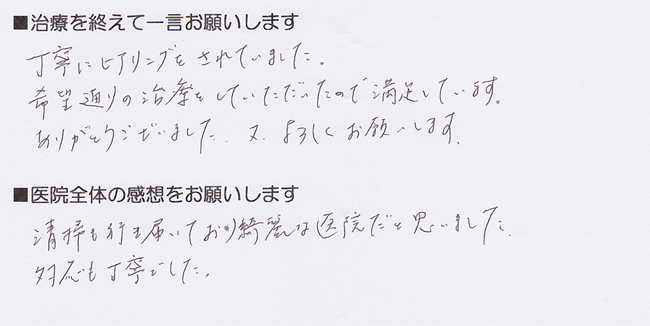 ■治療を終えて一言お願いします
丁寧にヒアリングをされていました。
希望通りの治療をしていただいたので満足しています。
ありがとうございました. 又、よろしくお願いします.
■医院全体の感想をお願いします
清掃も行き届いており綺麗な医院だと思いました.
対応も丁寧でした.